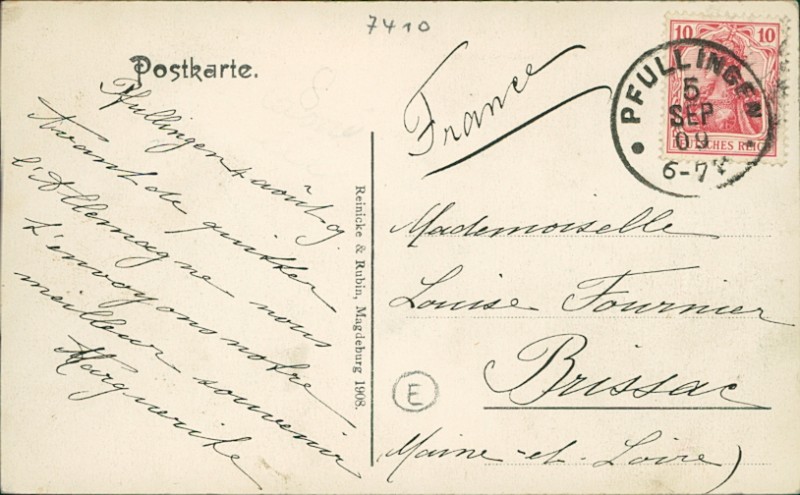 7410
Postkarte.
Pfullingen 4 août 9
Avant de quitter
l'Allemagne nous
t'envoyons notre
meilleur souvenir
Marguerite
Reinicke & Rubin, Magdeburg 1908.
France
10 10
DEUTSCHES REICH
PFULLINGEN
5
SEP
09
6-7
Mademoiselle
Louise Fournier
Brissac
E
Maine-et-Loire)